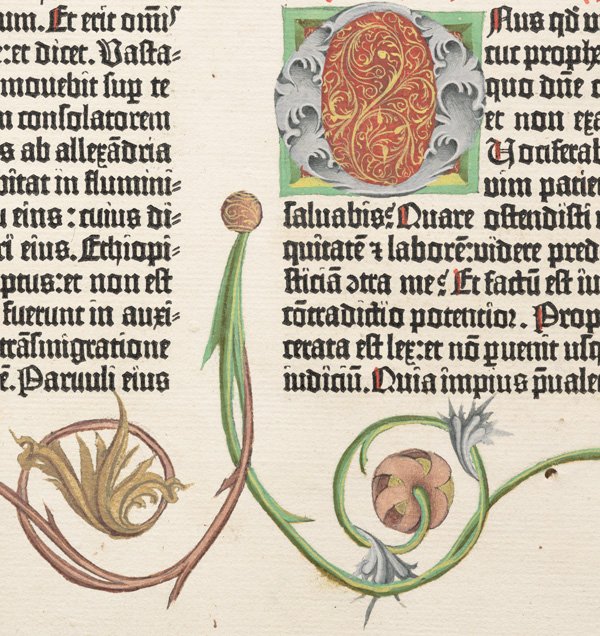 um. Et erit omīs
:et dicet. Vasta⸗
movebit sup te
n consolatorem
s ab allexādria
bitat in flumini⸗
u eius : cuius di⸗
ri eius. Ethiopi⸗
ptus:et non est
fuerunt in auxi⸗
trāsmigratione
ē. Parvuli eius
ONus qd vi
cuc prophe
quo dn̄e c
et non exa
Vociferab
vim patie
salvabis? Quare ostendisti
quitatē ⁊ laborē:videre pred
sticiā ↄtra me? Et factū est iu
cōtradictio potentior. Prop
cerata est lex:et nō ꝑvenit usq
iudiciū. Quia impius p̄valet